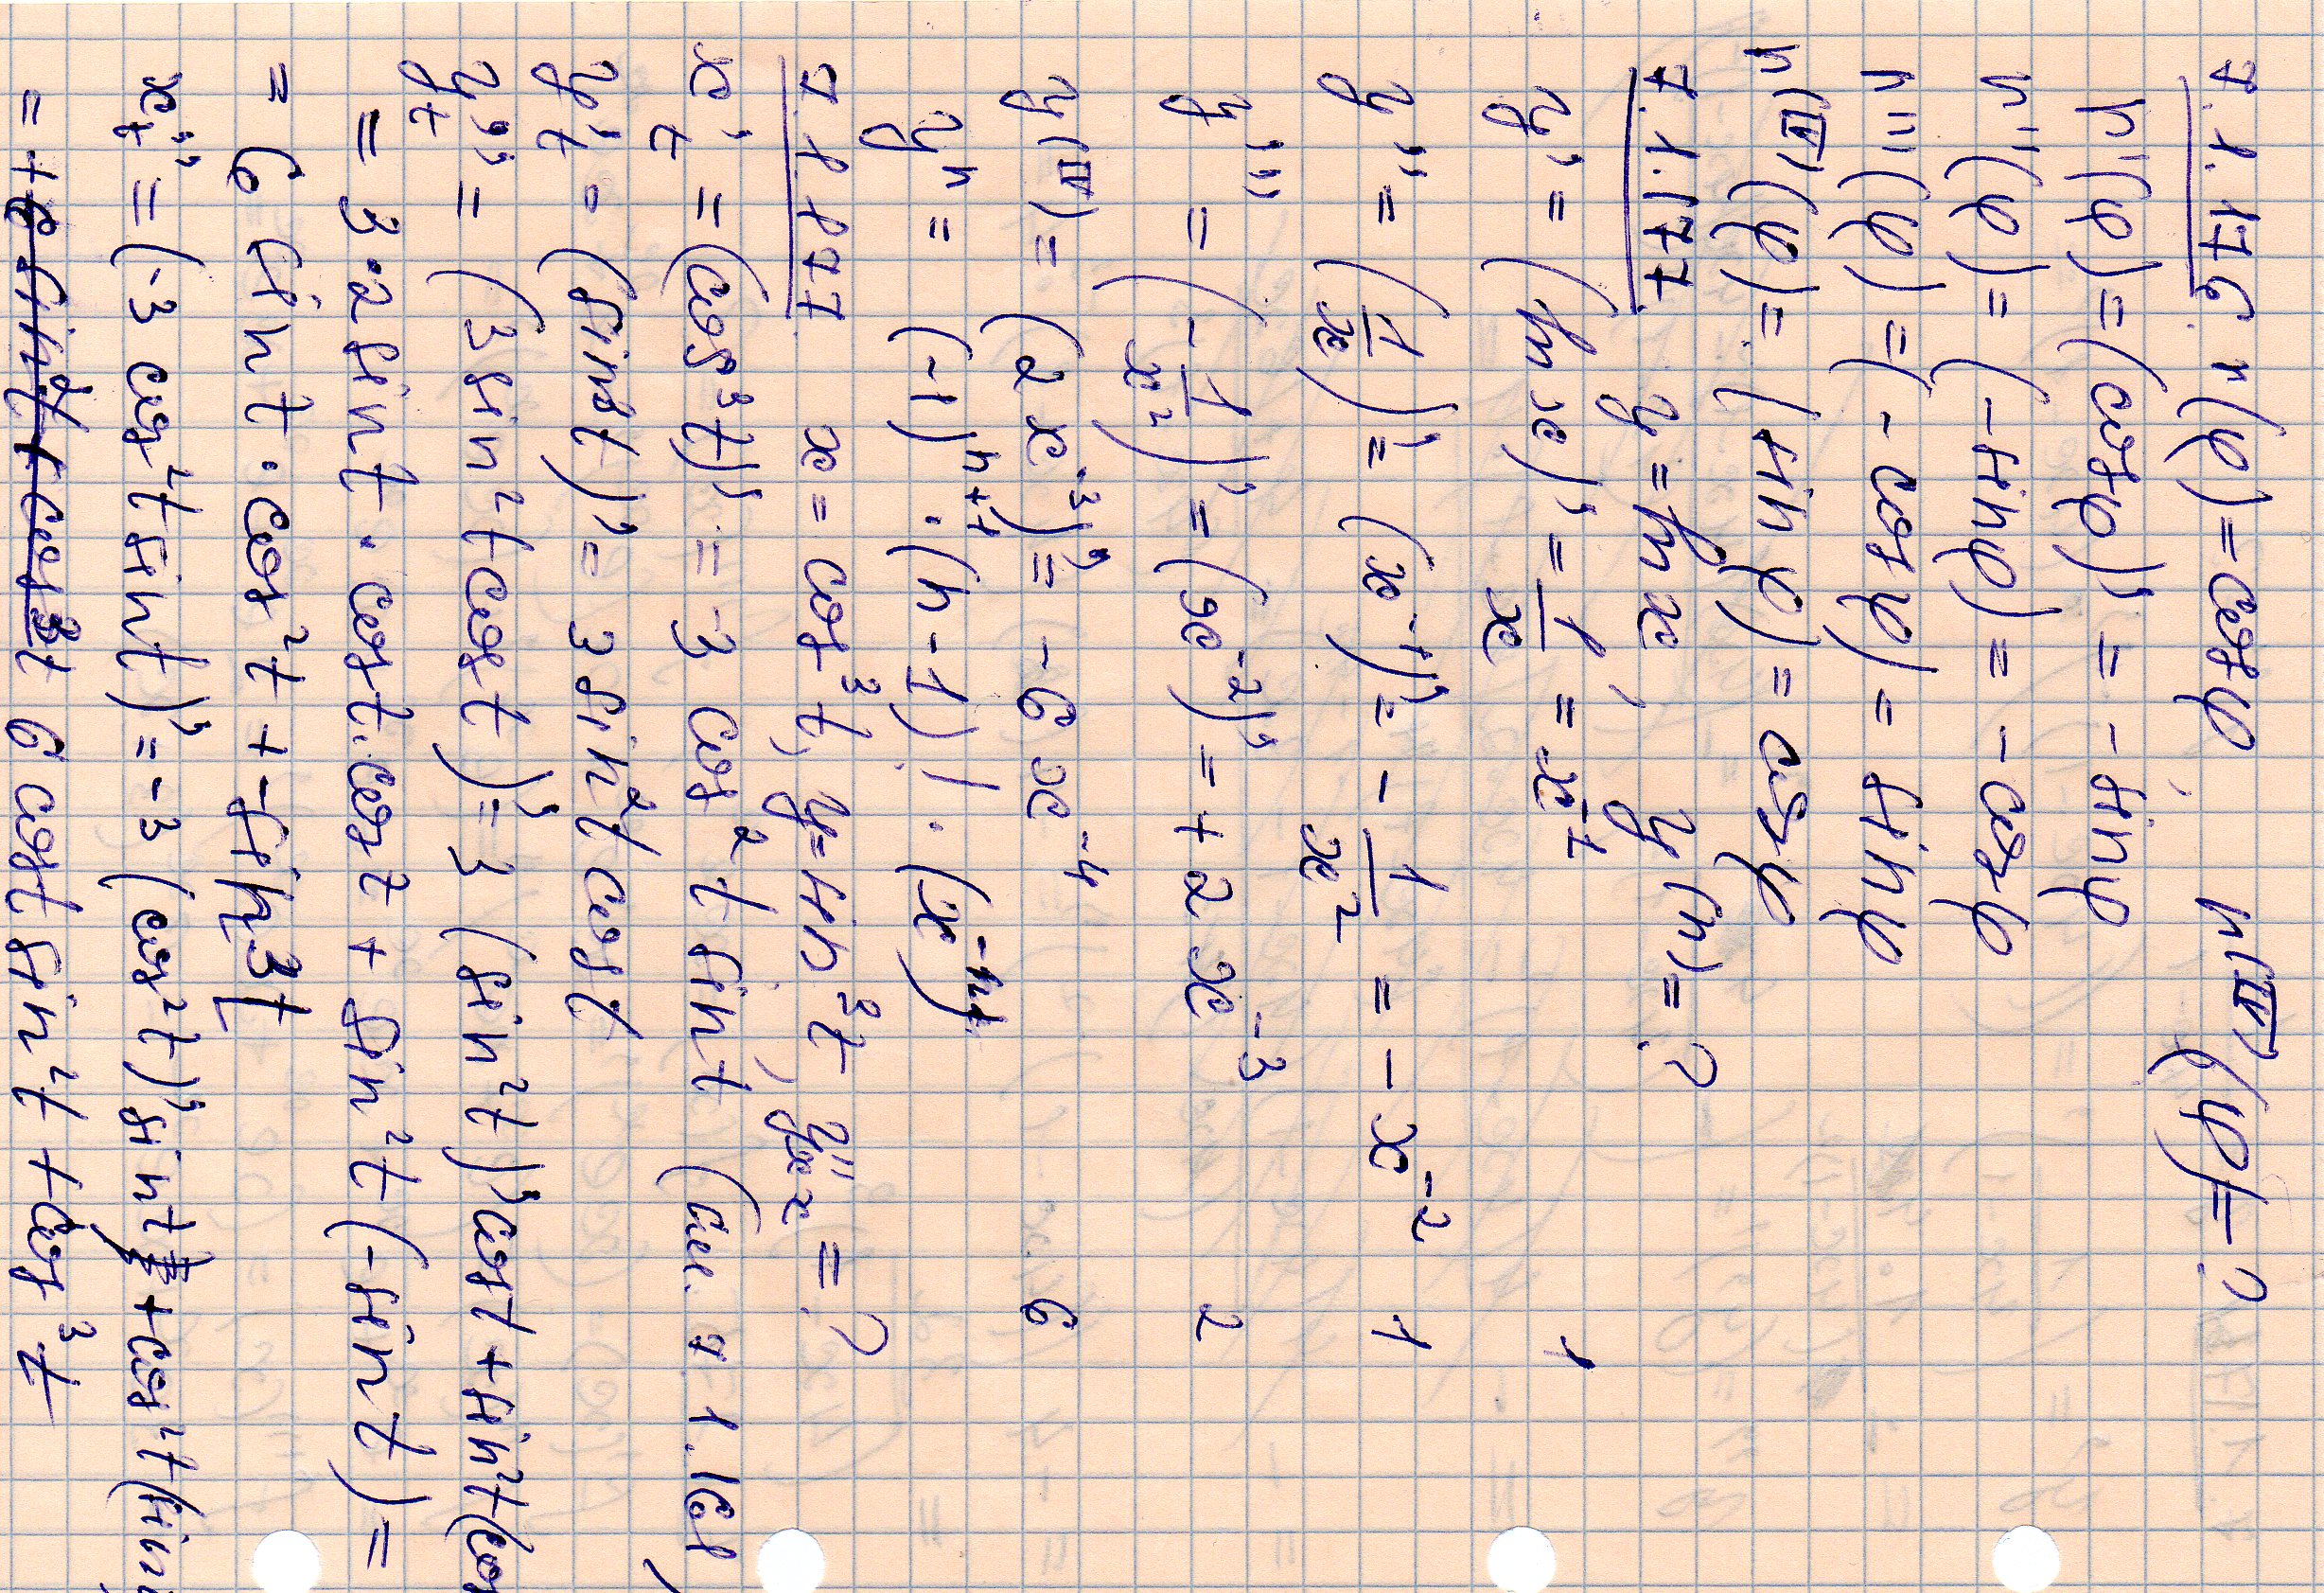 7.1.176. r(φ)=cosφ, r^(IV)(φ)=?
r'(φ)=(cosφ)' = -sinφ
r''(φ)= (-sinφ)= -cosφ
r'''(φ)=(-cosφ)= sinφ
r^(IV)(φ)= (sinφ)= cosφ
7.1.177. y=ln x, y^(n)=?
y' = (ln x)' = 1/x = x^-1 1
y'' = (1/x)' = (x^-1)' = - 1/x^2 = - x^-2 1
y''' = (-1/x^2)' = (x^-2)' = + 2 x^-3 2
y^(IV) = (2x^-3)' = -6 x^-4 6
y^n = (-1)^n+1 · (n-1)! · (x^-n)
7.1.177. x = cos^3 t, y=sin^3 t, y''xx = ?
x't = (cos^3 t)' = -3 cos^2 t sin t (см. 7.1.161)
y't = (sin^3 t)' = 3 sin^2 t cos t
y''t = (3 sin^2 t cos t)' = 3 (sin^2 t)' cos t + sin^2 t (cos
= 3·2 sin t · cos t · cos t + sin^2 t (-sin t) =
= 6 sin t · cos^2 t + -sin 3t
x''t = (-3 cos^2 t sin t)' = -3 (cos^2 t)' sin t + cos^2 t (sin
= + 6 cos t sin^2 t + cos^3 t